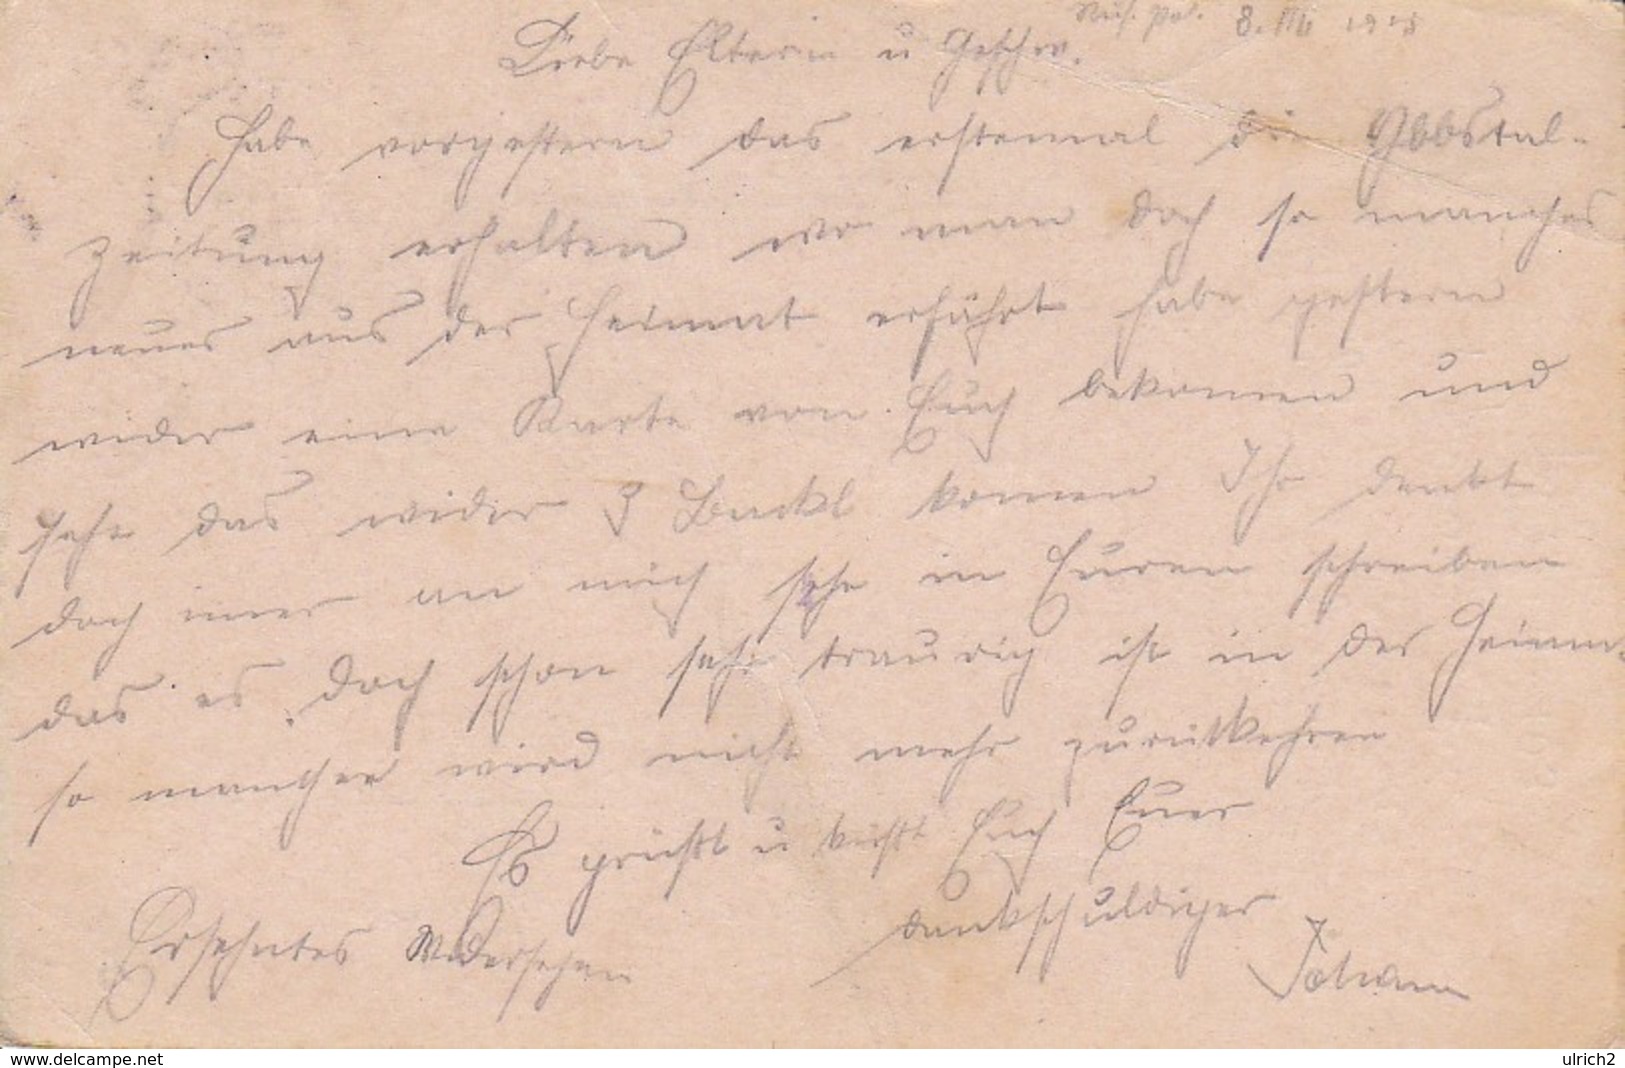 Rus. Pol. 8. III 1915
Liebe Eltern u Geschw.
Habe vorgestern das erstemal die Ybbstal-
zeitung erhalten wo man doch so manches
neues aus der Heimat erfährt habe gestern
wider eine Karte von Euch bekomen und
sehe das wider 3 Backl komen Ihr denkt
doch imer an mich sehe in Euren schreiben
das es doch schon sehr traurig ist in der Heimat
so mancher wird nicht mehr zurükkehren
Es grüßt u küßt Euch Euer
dankschuldiger
Ersehntes Widersehen
Johann
www.delcampe.net
ulrich2